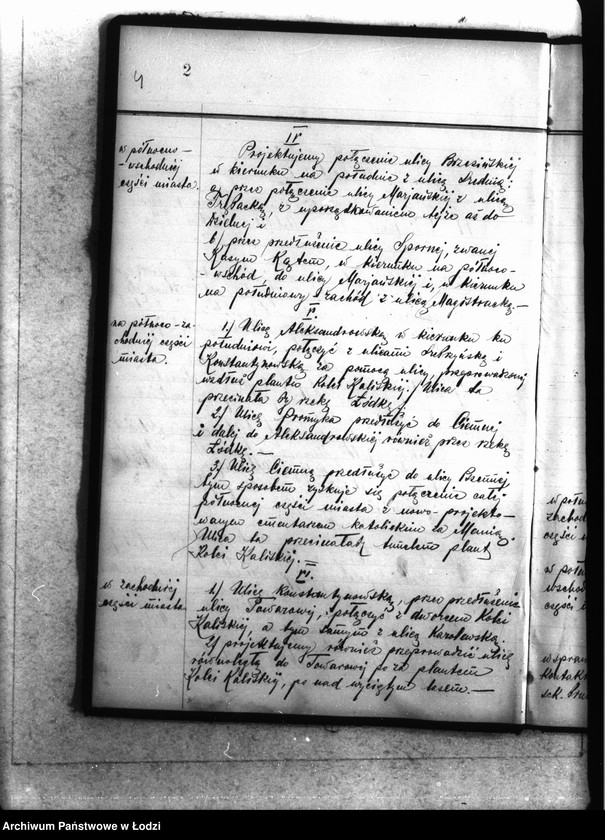 4
2
IV
w północno-
-wschodniej
części miasta.
Projektujemy połączenie ulicy Brzezińskiej
w kierunku na południe z ulicą Średnią:
a) przez połączenie ulicy Marjańskiej z ulicą
Trębacką, z uporządkowaniem tejże aż do
Dzielnej i
b) przez przedłużenie ulicy Spornej, zwanej
Kątem, w kierunku na północo-
-wschód do ulicy Marjańskiej i, w kierunku
na południowy zachód z ulicą Magistracką.—
V.
na północo-za-
chodniej części
miasta.
1.) Ulicę Aleksandrowską w kierunku ku
południowi, połączyć z ulicami i
Konstantynowską za pomocą ulicy, przeprowadzonej
wzdłuż plantu Kolei Kaliskiej. Ulica ta
przecinała by rzekę Łódkę.
2.) Ulicę Promyka przedłużyć do Ciemnej
i dalej do Aleksandrowskiej również przez rzekę
Łódkę.—
3.) Ulicę Ciemną przedłużyć do ulicy
tym sposobem zyskuje się połączenie całej
północnej części miasta z nowo-projekto-
wanym cmentarzem katolickim za Manią.
Ulica ta przecinałaby tunelem plant
Kolei Kaliskiej.—
VI.
w zachodniej
części miasta
1.) Ulicę Konstantynowską, przez przedłużenie
ulicy Towarowej, połączyć z dworcem Kolei
Kaliskiej, a tym samym z ulicą Karolewską.
2.) projektujemy również przeprowadzić ulicę
równoległą do Towarowej poza plantem
Kolei Kaliskiej, po nad wyciętym lasem.—
w połu
zachod
części
w połu
wschod
części
w spraw
kontak
Archiwum Państwowe w Łodzi